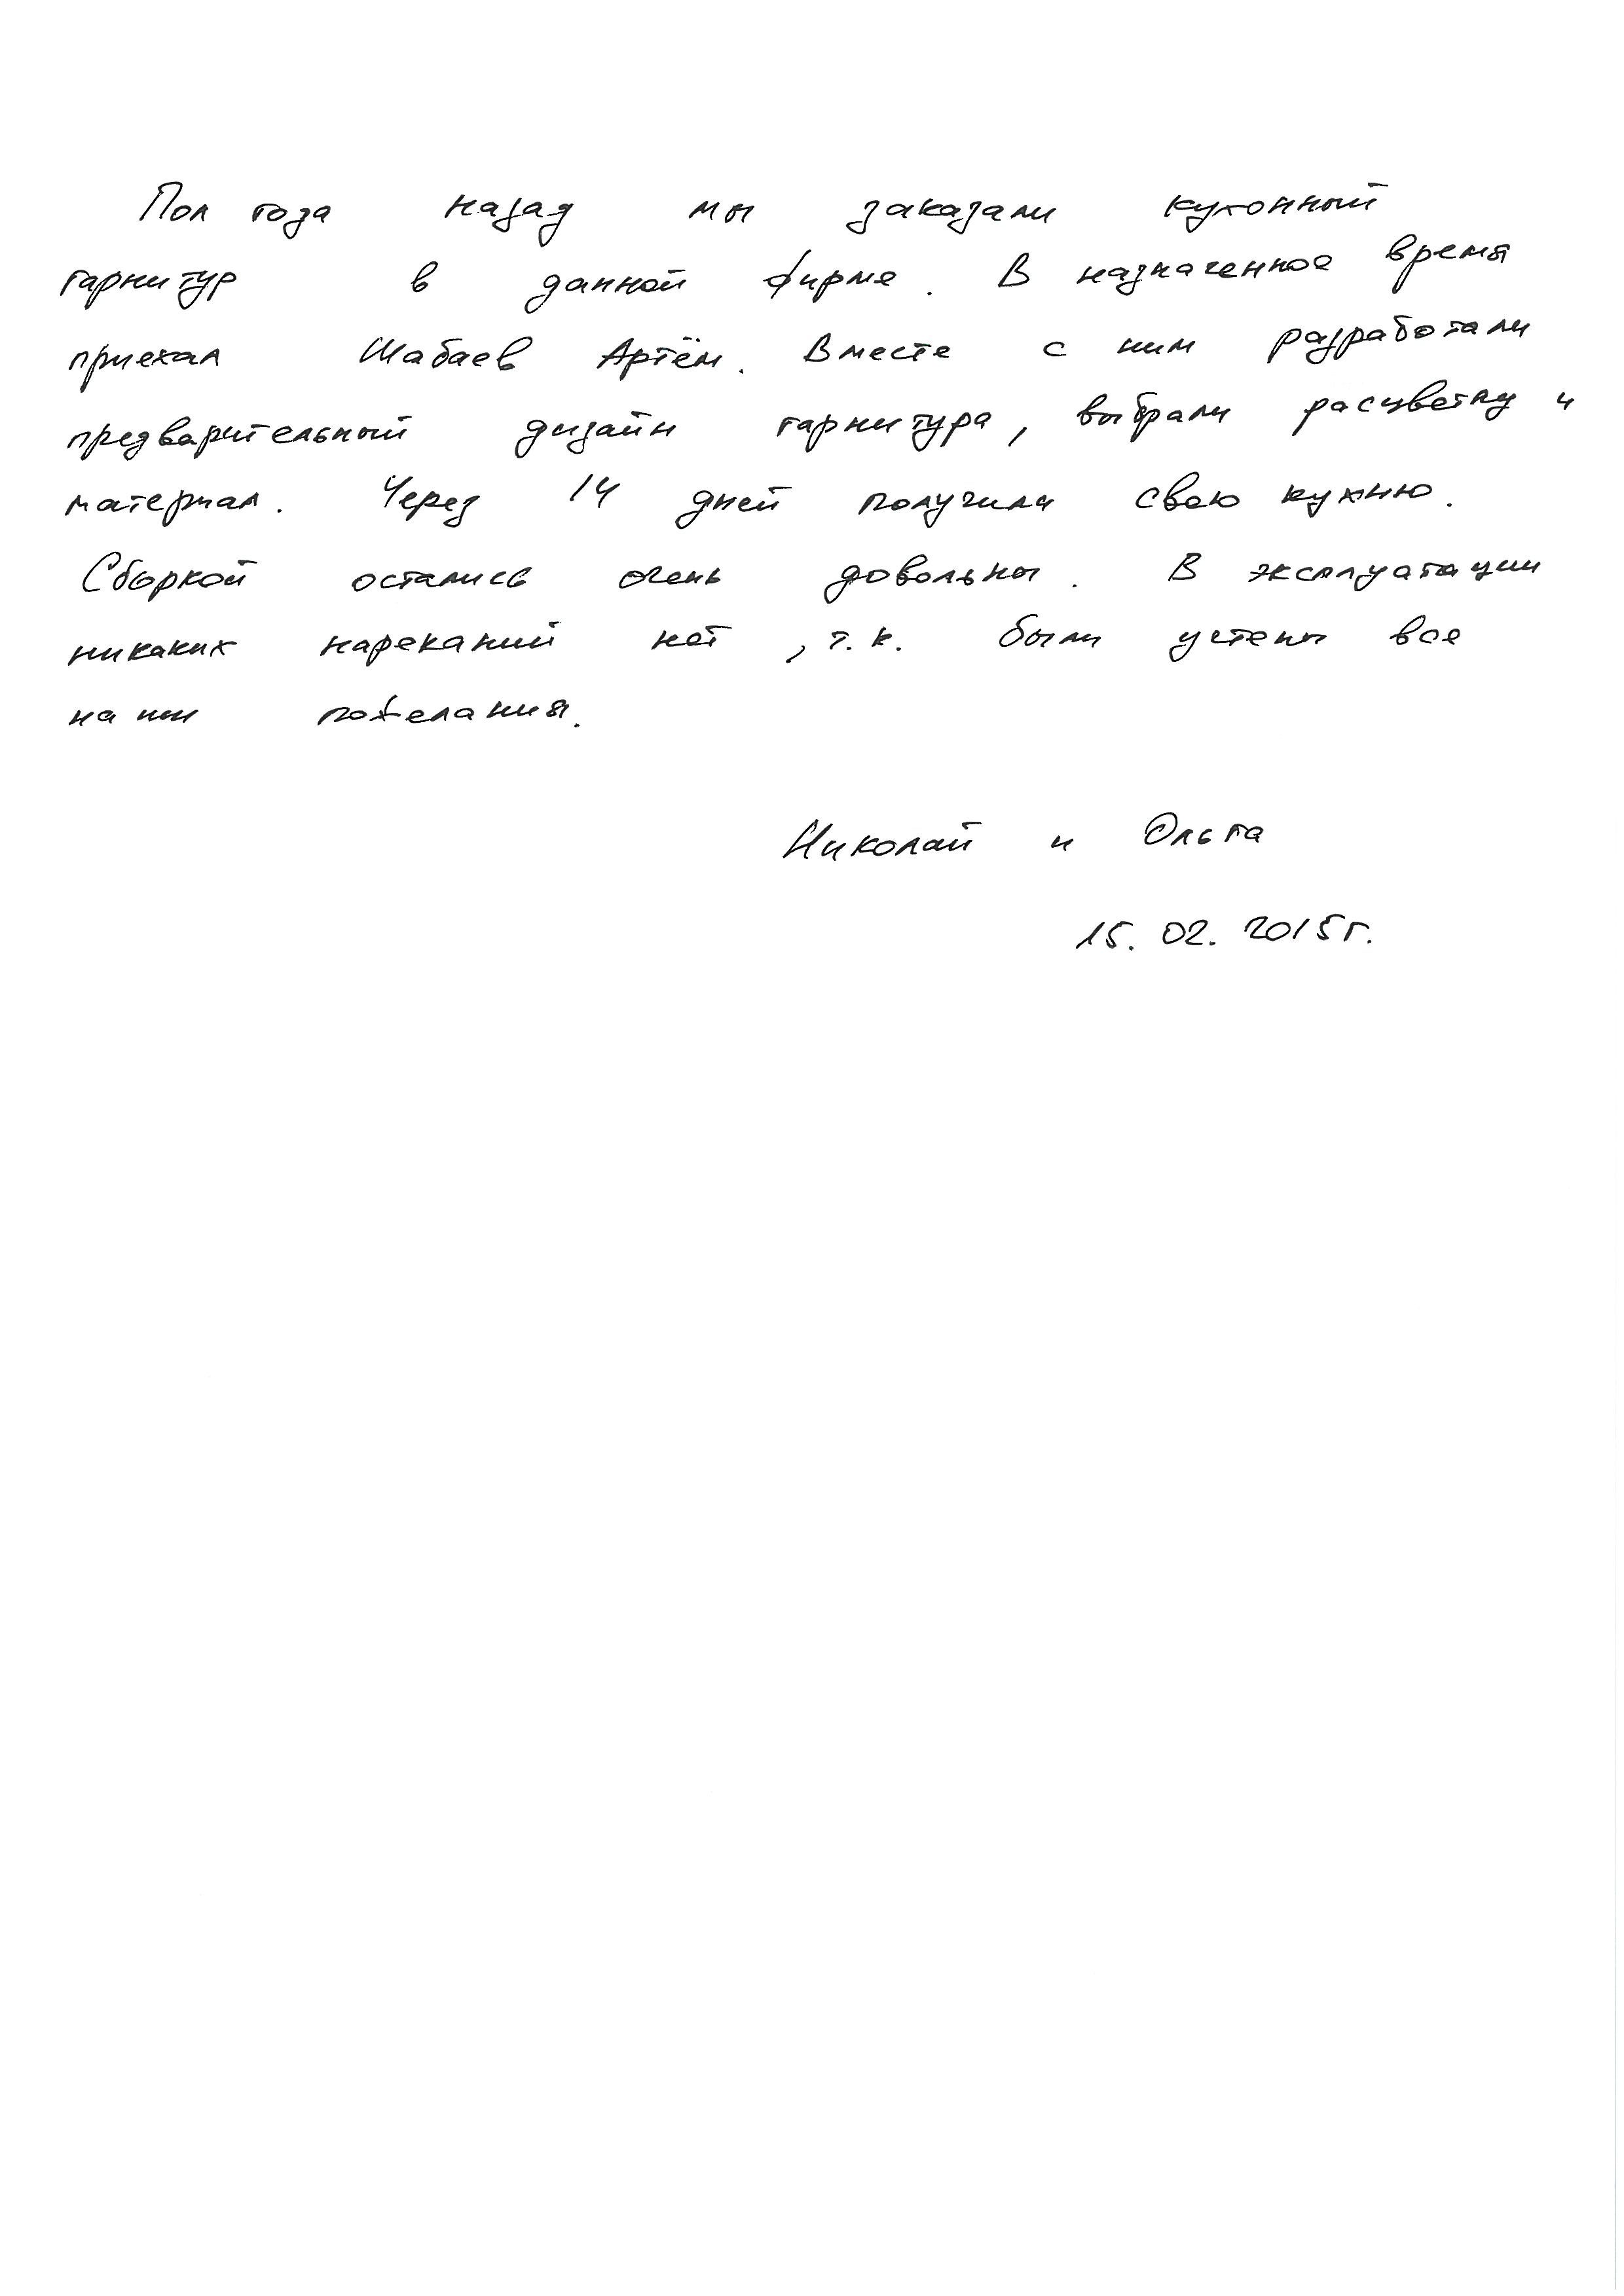 Пол года назад мы заказали кухонный
гарнитур в данной фирме. В назначенное время
приехал Шабаев Артём. Вместе с ним разработали
предварительный дизайн гарнитура, выбрали расцветку и
материал. Через 14 дней получили свою кухню.
Сборкой остались очень довольны. В эксплуатации
никаких нареканий нет, т.к. были учтены все
наши пожелания.
Николай и Ольга
15.02.2015г.